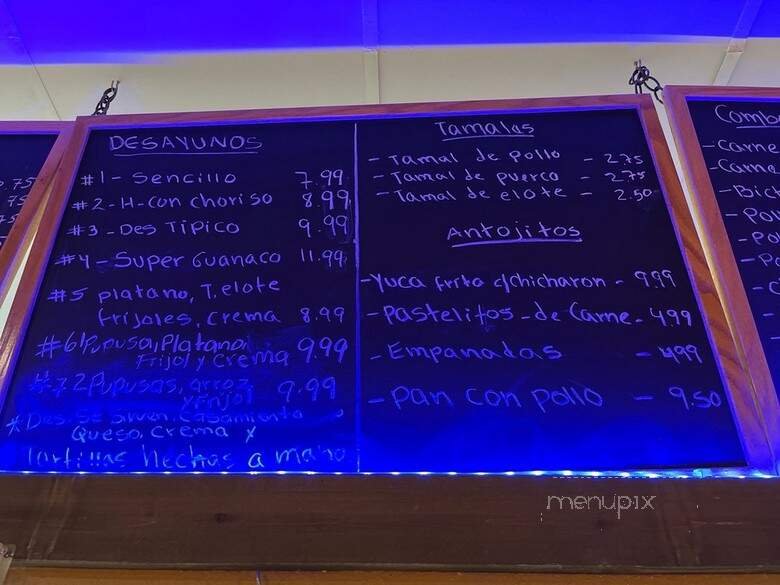 DESAYUNOS
#1 - Sencillo 7.99
#2 - H-con choriso 8.99
#3 - Des Tipico 9.99
#4 - Super Guanaco 11.99
#5 platano, T. elote
frijoles, crema 8.99
#6 Pupusa, Platano
Frijol y crema 9.99
#7 2 Pupusas, arroz
y Frijol 9.99
* Des. Se Sirven Casamiento
Queso, Crema y
Tortillas hechas a mano
Tamales
- Tamal de pollo - 2.75
- Tamal de puerco - 2.75
- Tamal de elote - 2.50
Antojitos
- Yuca frita c/chicharon - 9.99
- Pastelitos - de Carne - 4.99
- Empanadas - 4.99
- Pan con pollo - 9.50
Comb
- Carne
- Carne
menupix